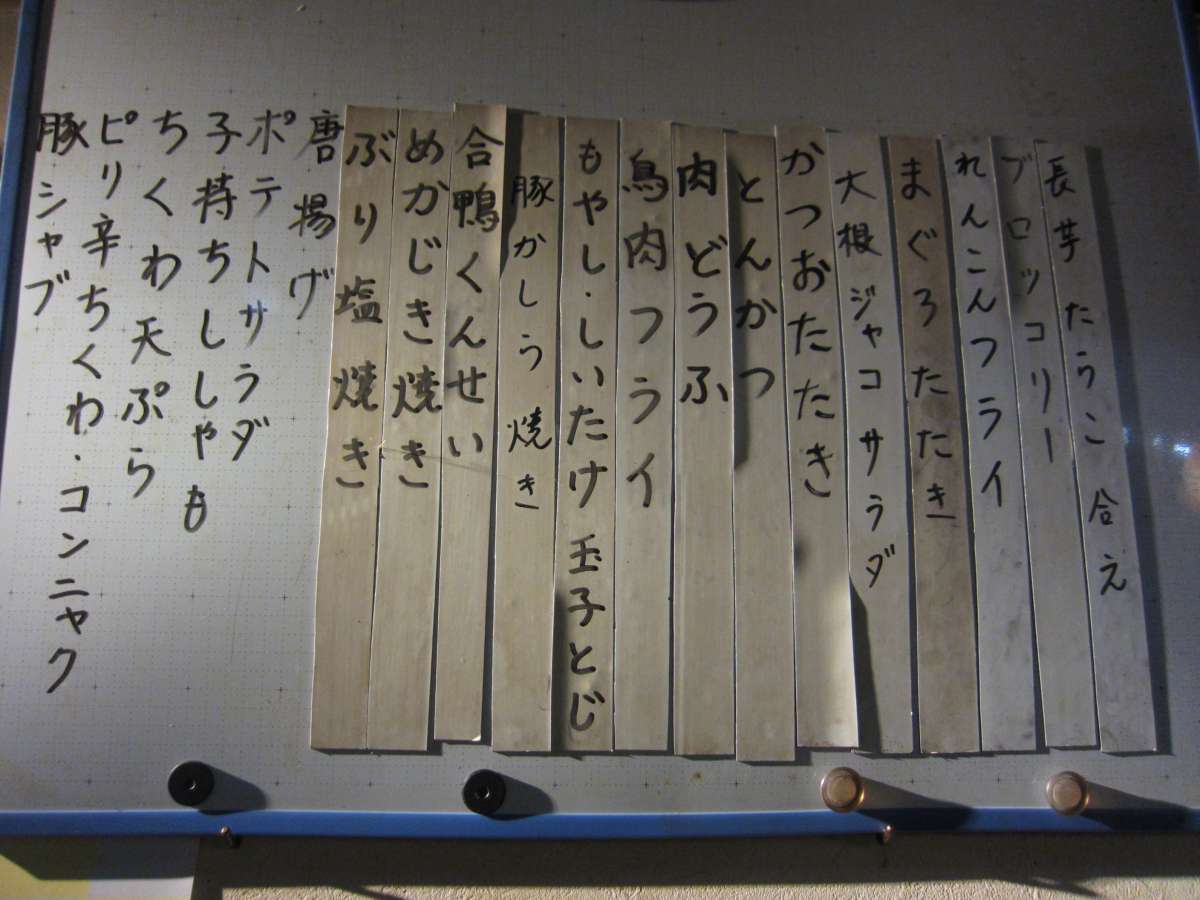 長芋たらこ合え
ブロッコリー
れんこんフライ
まぐろたたき
大根ジャコサラダ
かつおたたき
とんかつ
肉どうふ
鳥肉フライ
もやし・しいたけ玉子とじ
豚かしら焼き
合鴨くんせい
めかじき焼き
ぶり塩焼き
唐揚げ
ポテトサラダ
子持ちししゃも
ちくわ天ぷら
ピリ辛ちくわ・コンニャク
豚シャブ